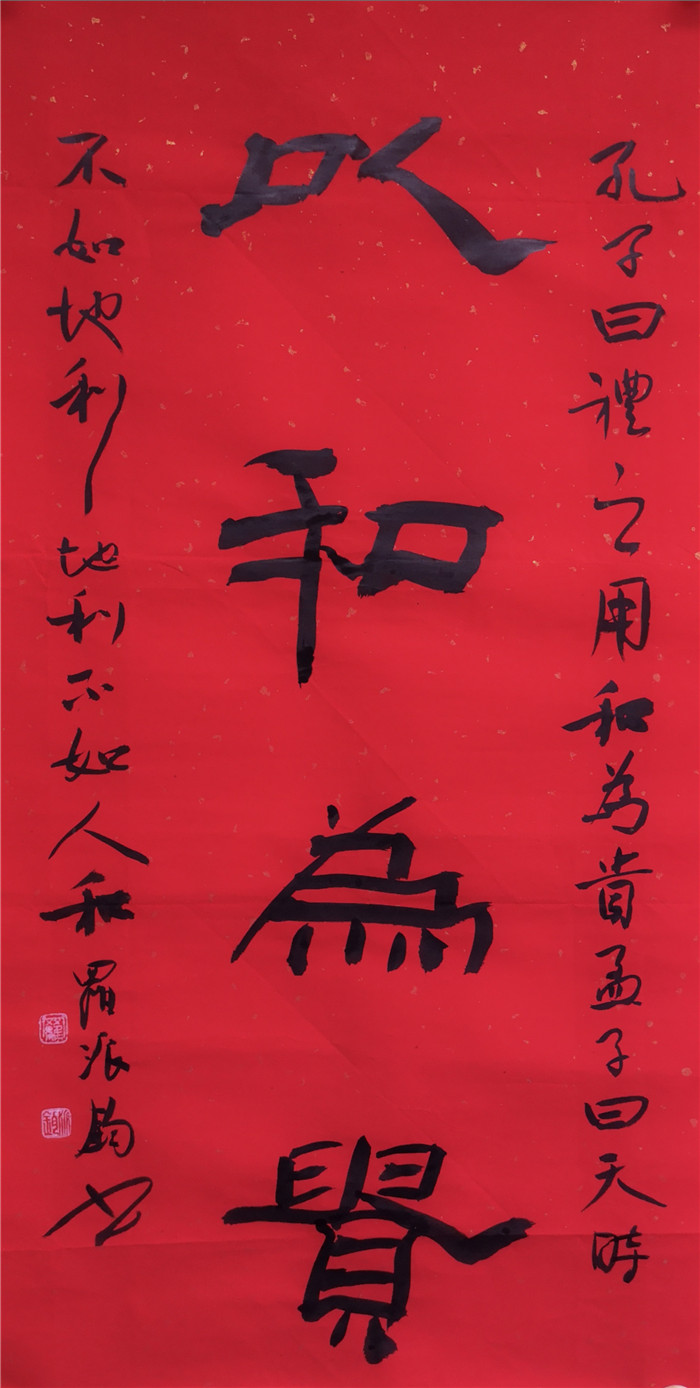 以和為貴
孔子曰禮之用和為貴孟子曰天時
不如地利地利不如人和羅派鈞书